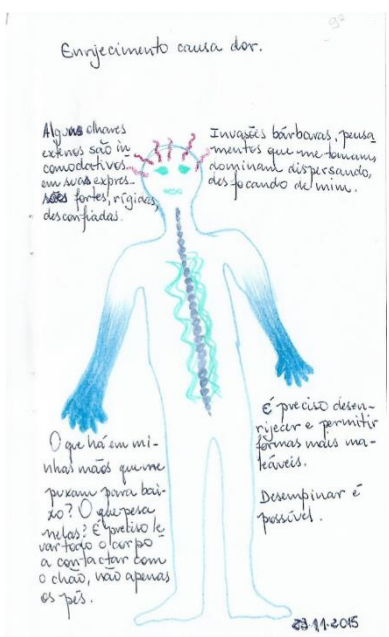 92
Enrijecimento causa dor.
Alguns olhares
externos são in
comodativos
em suas expres-
sões fortes, rígidas,
desconfiadas.
Invasões bárbaras, pensa
mentos que me tomam,
dominam dispersando,
desfocando de mim.
O que há em mi-
nhas mãos que me
puxam para bai-
xo? O que pesa
nelas? É preciso le
var todo o corpo
a contactar com
o chão, não apenas
os pés.
É preciso desen-
rijecer e permitir
formas mais ma-
leáveis.
Desempinar é
possível.
23.11.2015